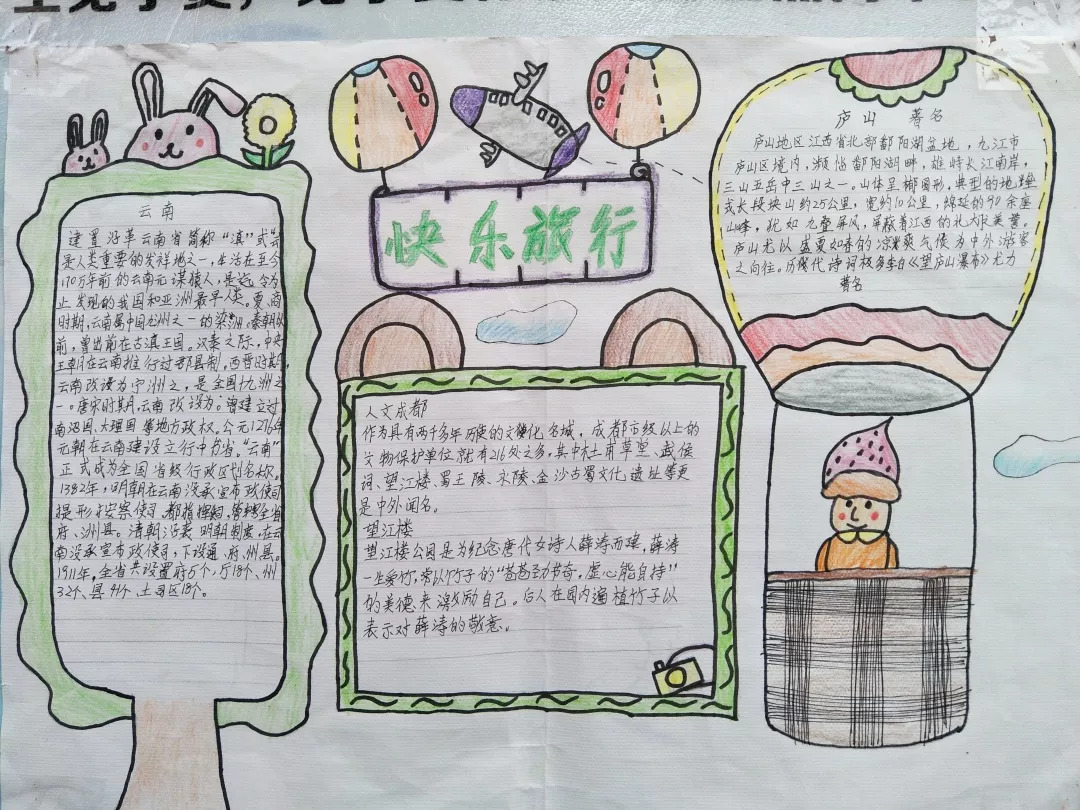 快乐旅行
云南
建置沿革云南省简称“滇”或“云
是人类重要的发祥地之一，生活在至今
170万年前的云南元谋猿人，是迄今为
止发现的我国和亚洲最早人类。夏、商
时期，云南属中国九州之一的梁洲。秦朝以
前，曾出前在古滇王国。汉秦之际，中央
王朝在云南推行过郡县制，西晋时期
云南改设为宁洲之，是全国十九洲之
一。唐宋时其月，云南改设为。曾建立过
南诏国、大理国等地方政权，公元1276年
元朝在云南建设立行中书省，“云南”
正式成为全国省级行政区划名称。
1382年，明朝在云南没承宣布政使司
提形按察使司、都指挥司，管辖全省
府、洲县。清朝沿袭明朝制度，在云
南没承宣布政使司，下设道、府、州、县。
1911年，全省共设置府5个，厅18个、州
32个、县41个、土司区18个。
人文成都
作为具有两千多年历史的文化名城，成都市级以上的
文物保护单位就有216处之多，其中杜甫草堂、武侯
词、望江楼、蜀王陵、永陵、金沙古蜀文化遗址等更
是中外闻名。
望江楼
望江楼公园是为纪念唐代女诗人薛涛而建，薛涛
一生爱竹，常以竹子的“苍苍劲节奇，虚心能自持”
的美德来激励自己。后人在园内遍植竹子以
表示对薛涛的敬意。
庐山 著名
庐山地区江西省北部鄱阳湖盆地，九江市
庐山区境内，濒临鄱阳湖畔，雄峙长江南岸，
三山五岳中三山之一。山体呈椰圆形，典型的地垒
或长段块山约25公里，宽约10公里，绵延的90余座
山峰，犹如九叠屏风，屏蔽着江西的北大门。
庐山尤以盛夏如春的凉爽气候为中外游客
之向往。历代诗词极多李白《望庐山瀑布》尤为
著名